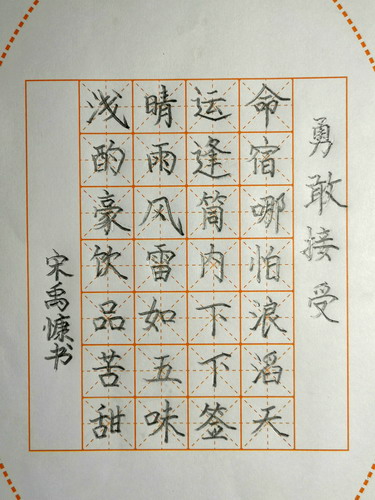 勇敢接受
命宿哪怕浪滔天
运逢筒肉下下签
晴雨风雷如五味
浅酌豪饮品苦甜
宋禹慷书